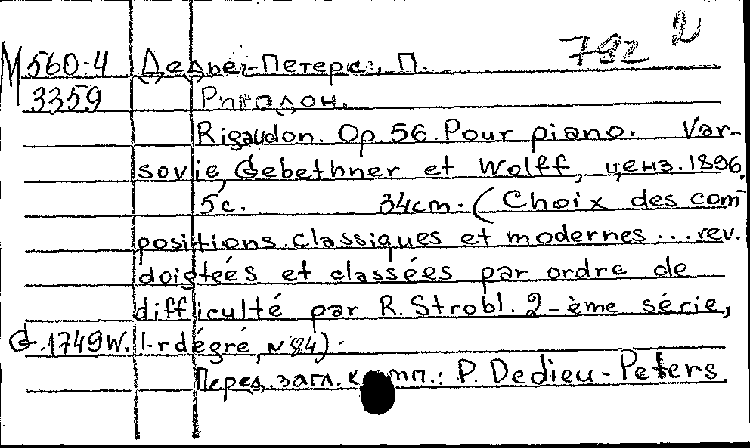 М560-4 Дедьеː-Петерс, П. 792 2
3359 Ригодон.
Rigaudon. Op.56. Pour piano. Var-
sovie, Gebethner et Wolff, ценз. 1896.
5с. 34cm. (Choix des com-
positions classiques et modernes...rev.
doigtées et classées par ordre de
difficulté par R. Strobl. 2-ème série,
G.1749W. I-r dégré, №84).
Перед загл. комп.: P. Dedieu-Peters.